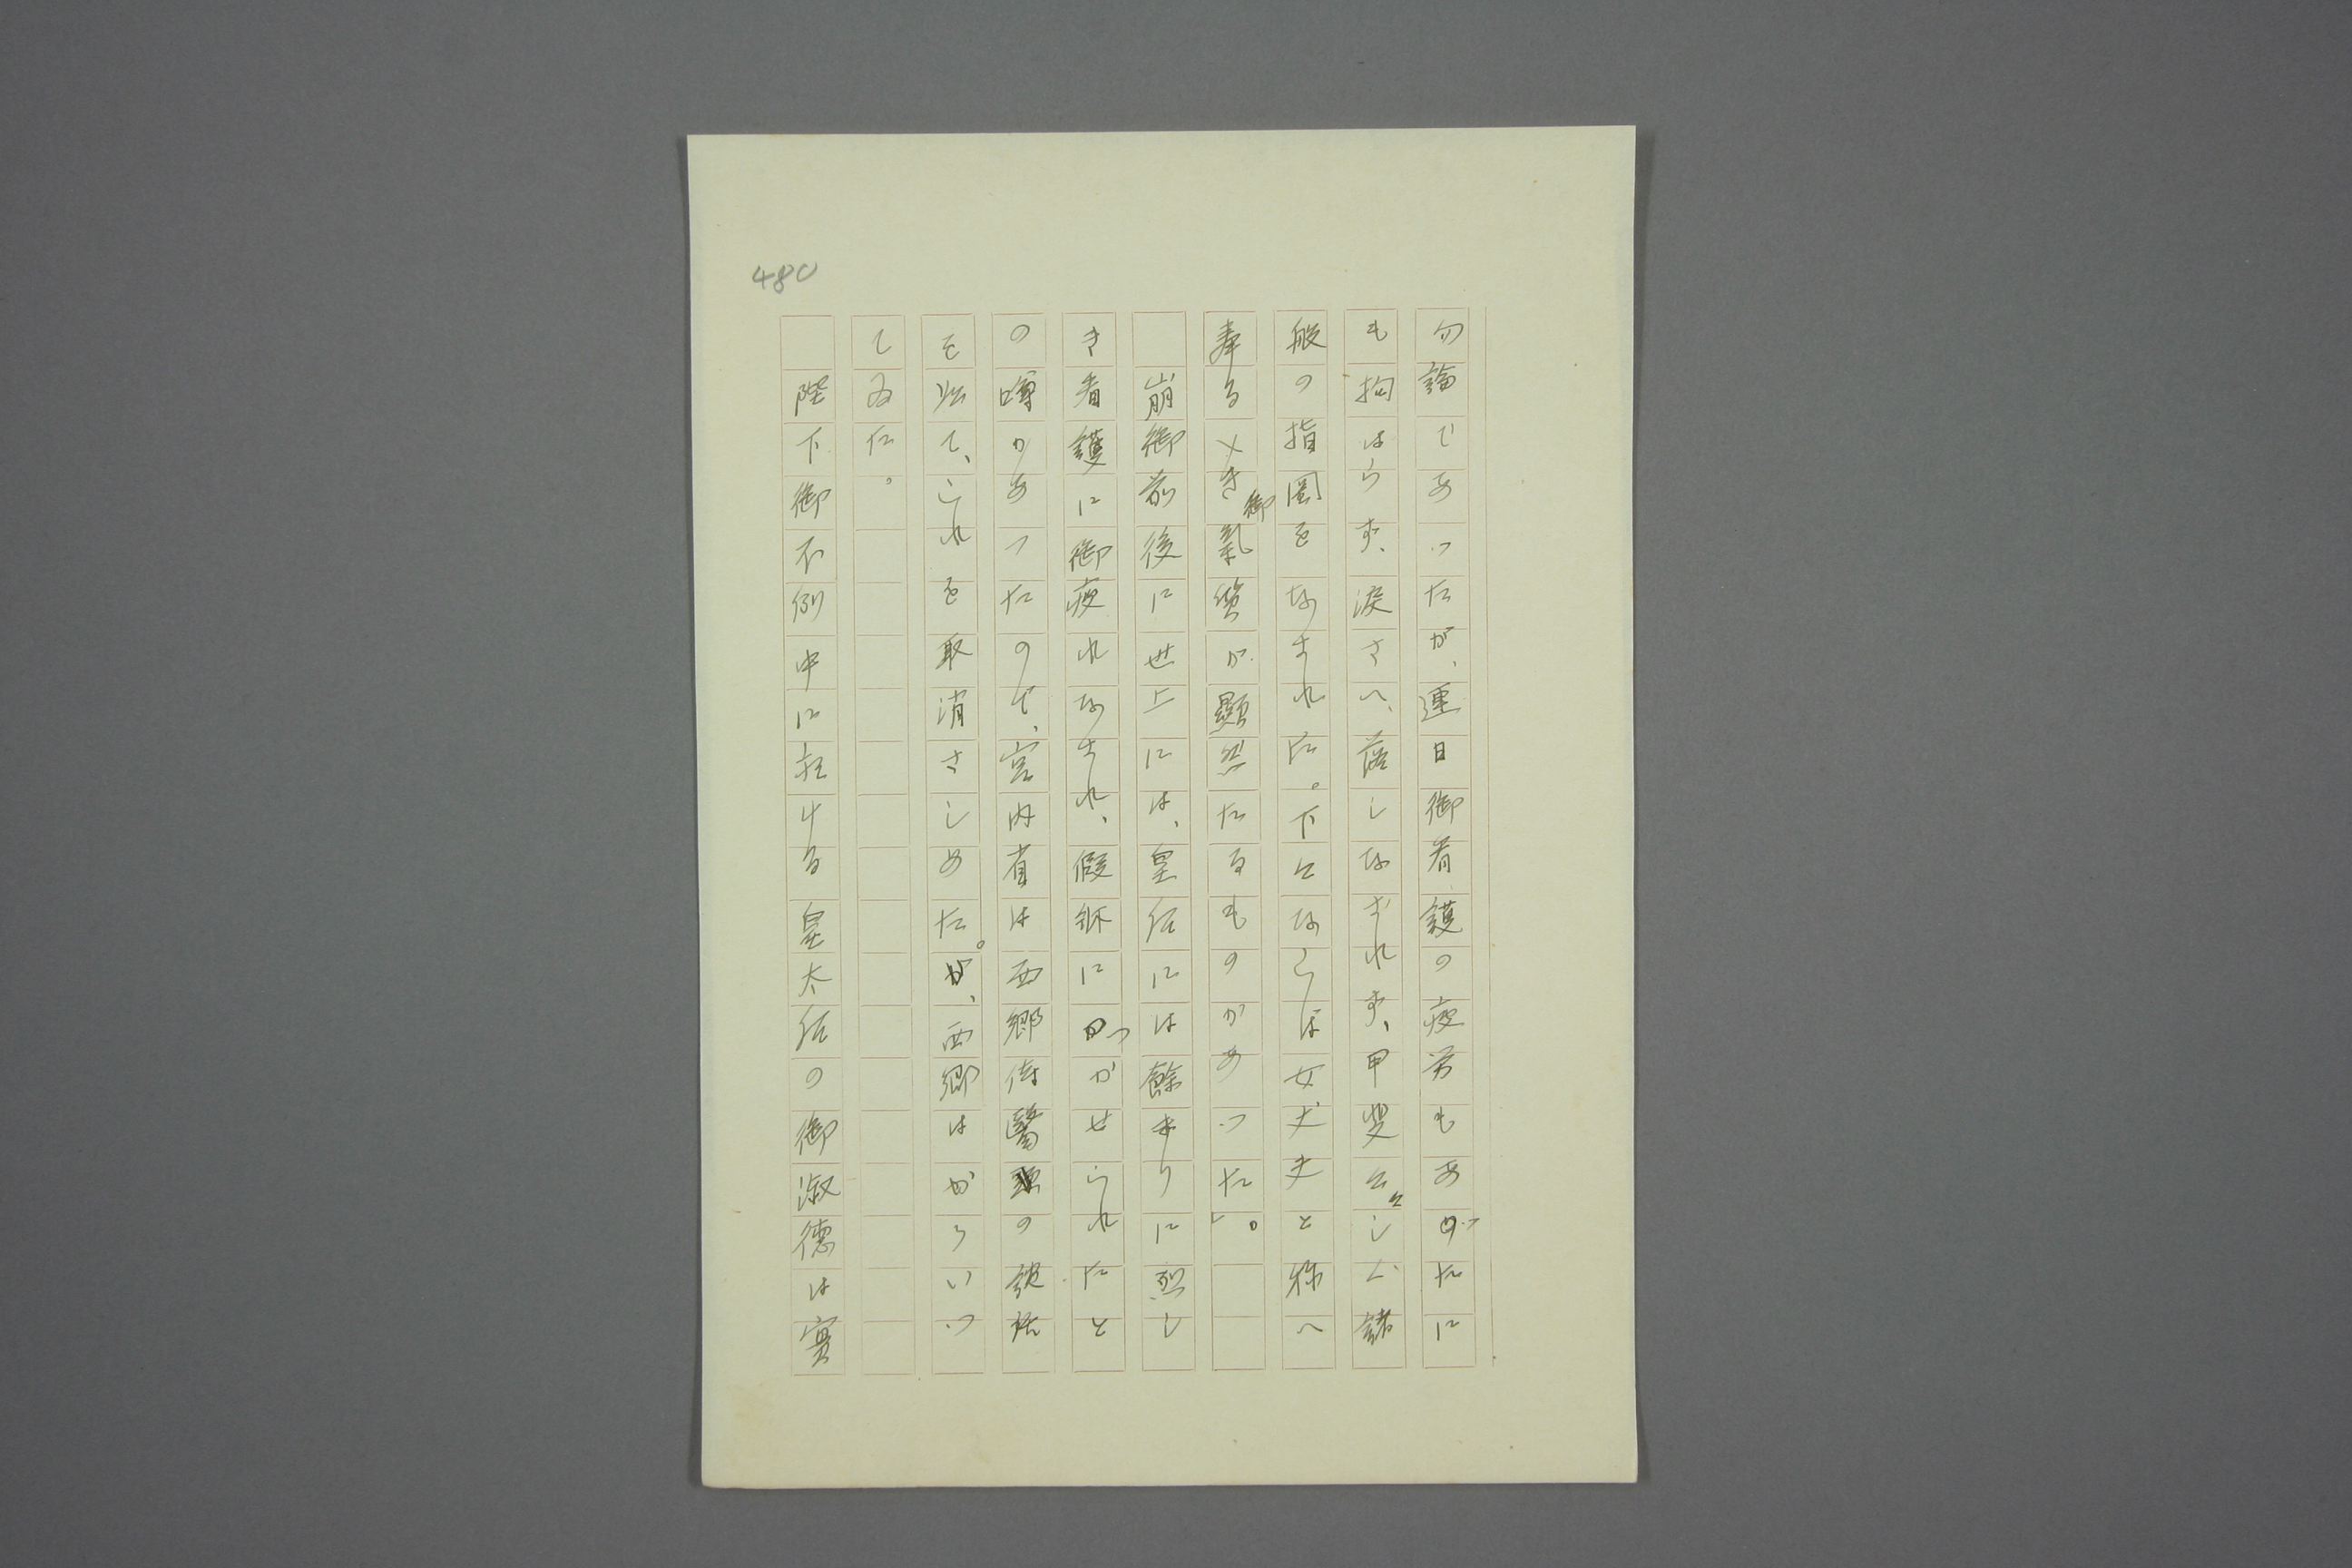 480
勿論であつたが、連日御看護の疲労もあつたに
も拘はらず、涙さへ、落しなされず、甲斐〻〻しく諸
般の指圖をなされた。下々ならば女丈夫と称へ
奉るべき御氣質が顯然たるものがあつた」。
崩御前後に世上には、皇后には餘まりに烈し
き看護に御疲れなされ、假病にかゝらせられたと
の噂があつたので、宮内省は西郷侍醫頭の談話
を以て、これを取消さしめた。が、西郷はかういつ
てゐた。
陛下御不例中に於ける皇太后の御淑徳は實